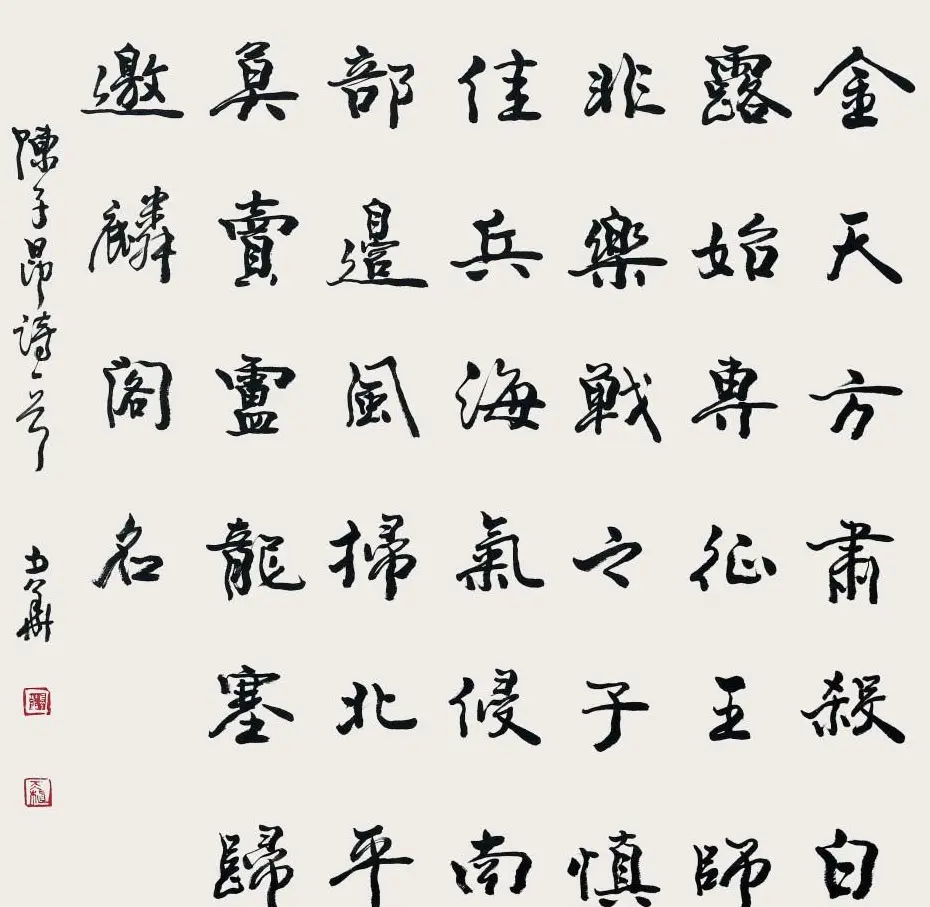 金天方肅殺白
露始專征王師
非樂戰之子慎
佳兵海氣侵南
部邊風掃北平
莫賣盧龍塞歸
邀麟閣名
陳子昂詩一首